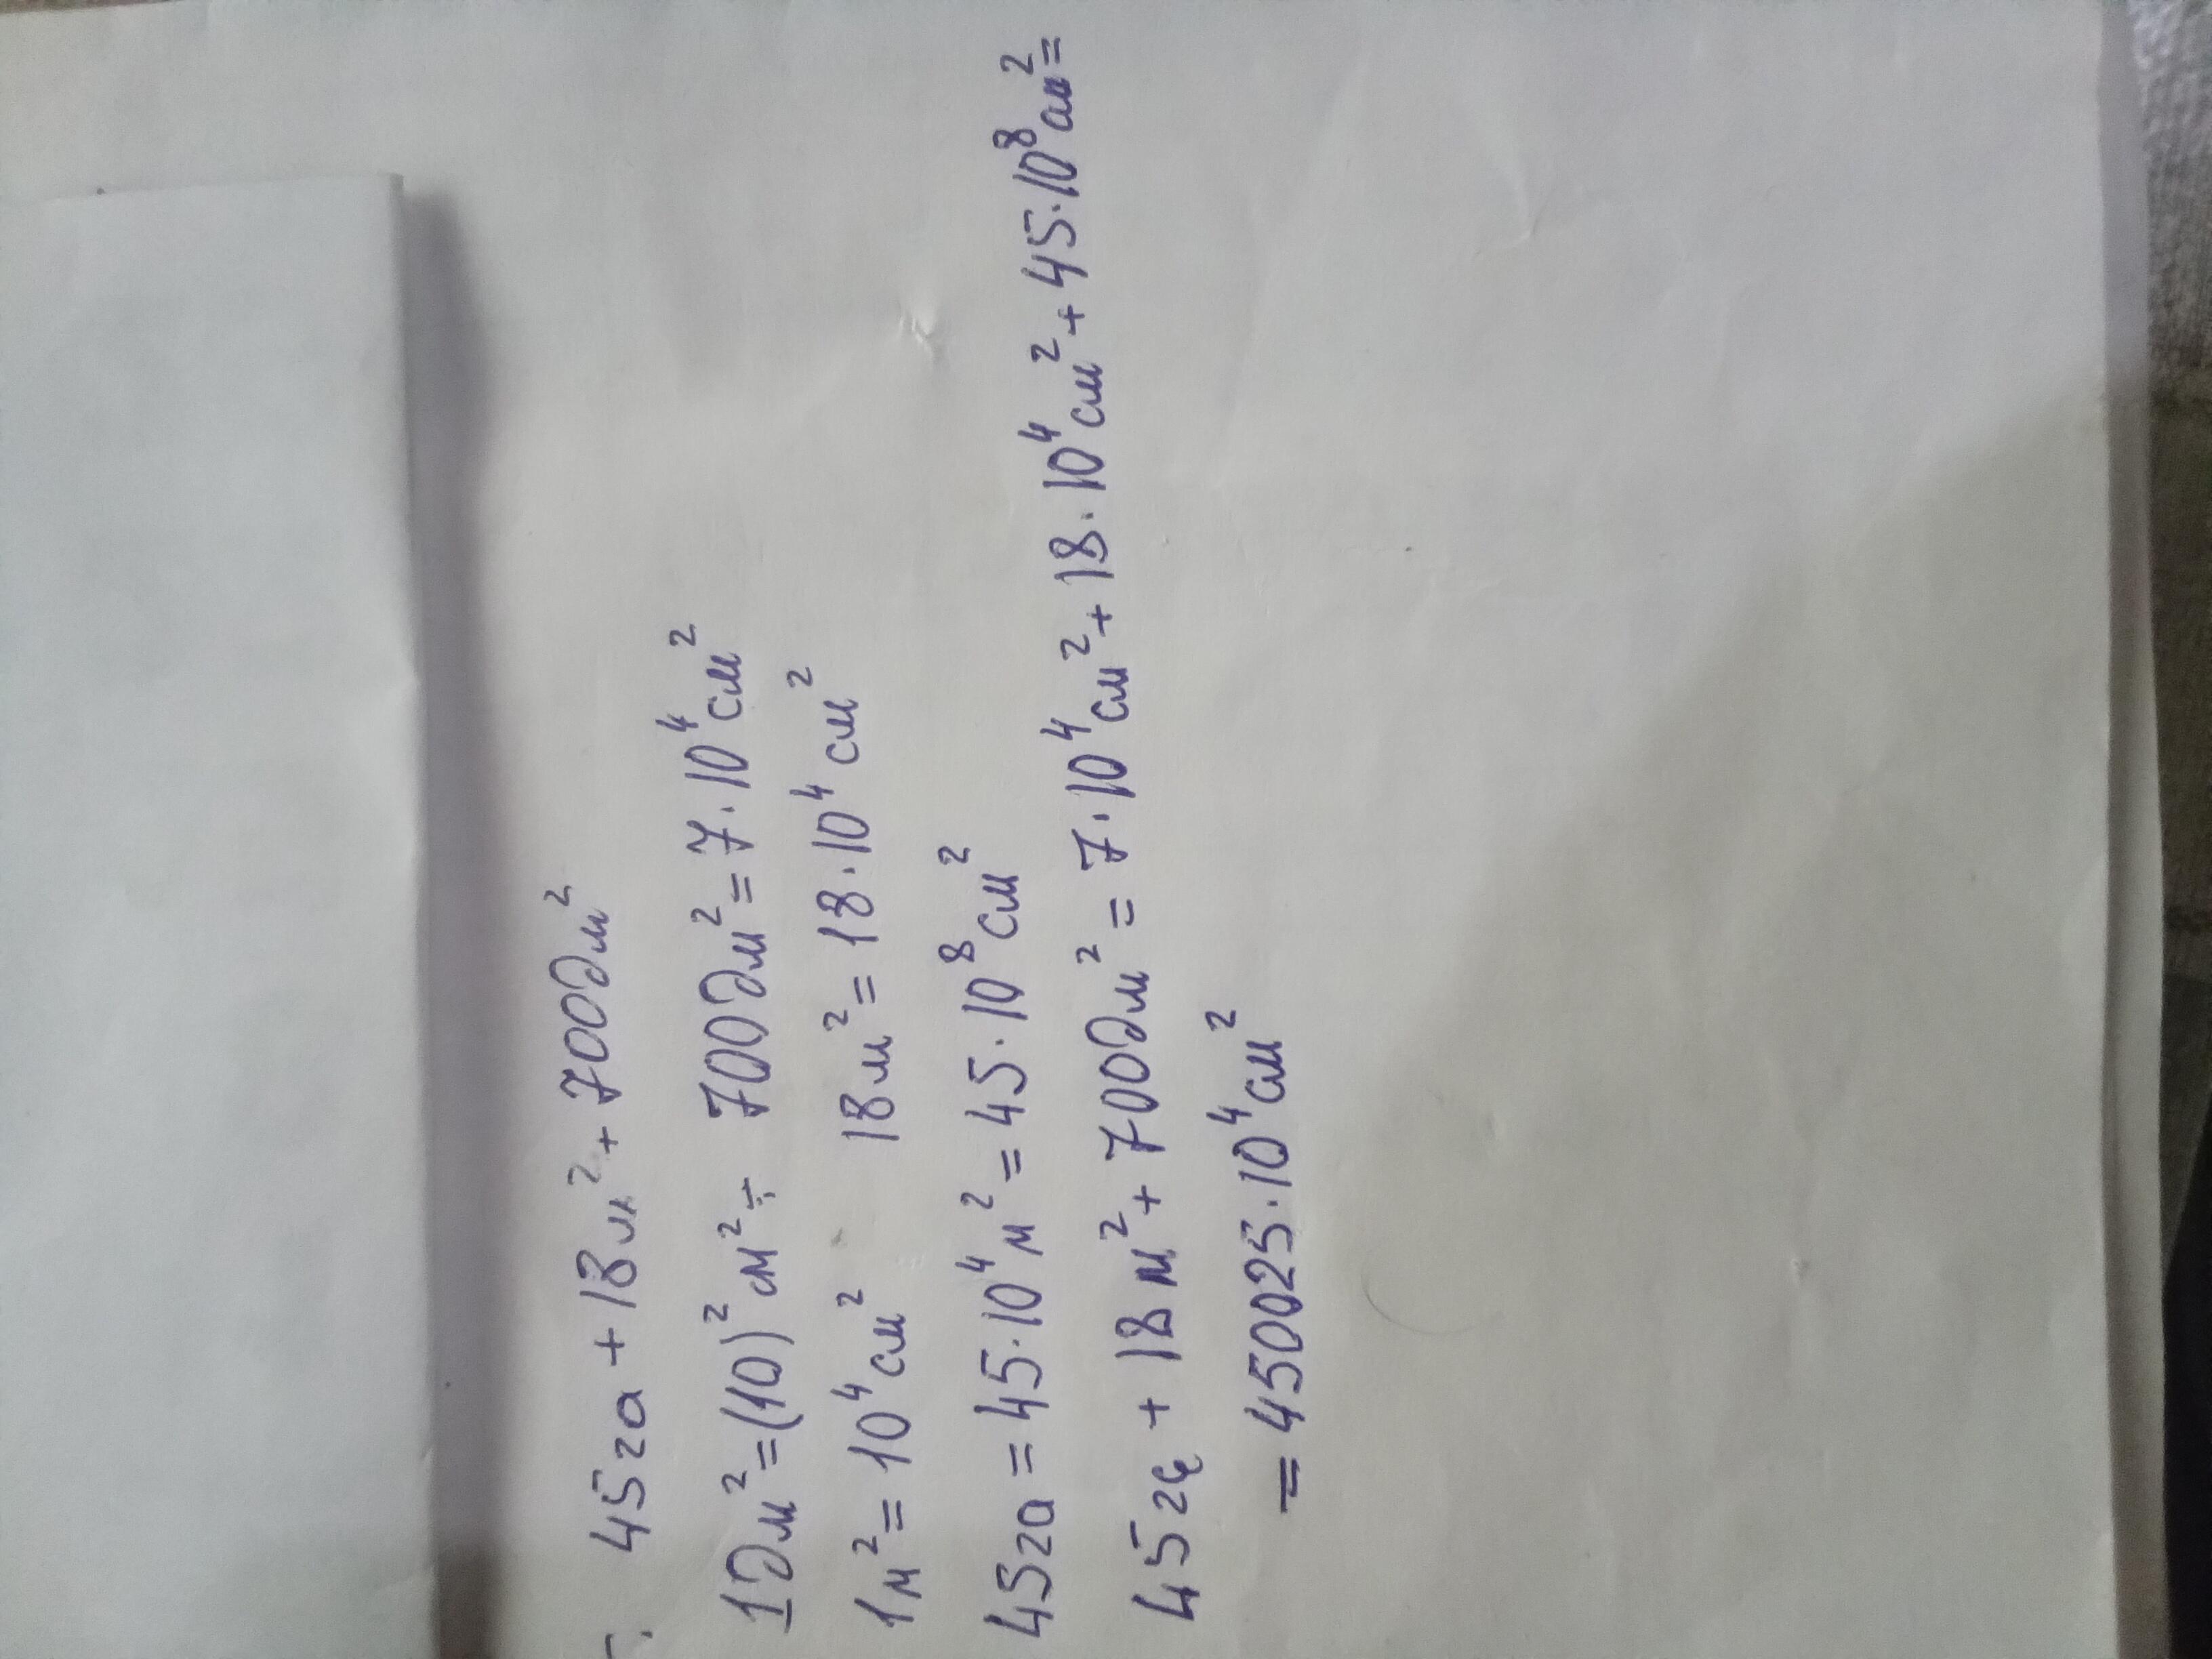 45га + 18м² + 700дм²
1дм² = (10)² см² ; 700дм² = 7·10⁴ см²
1м² = 10⁴ см² 18м² = 18·10⁴ см²
45га = 45·10⁴ м² = 45·10⁸ см²
45га + 18м² + 700дм² = 7·10⁴ см² + 18·10⁴ см² + 45·10⁸ см² =
= 450025·10⁴ см²